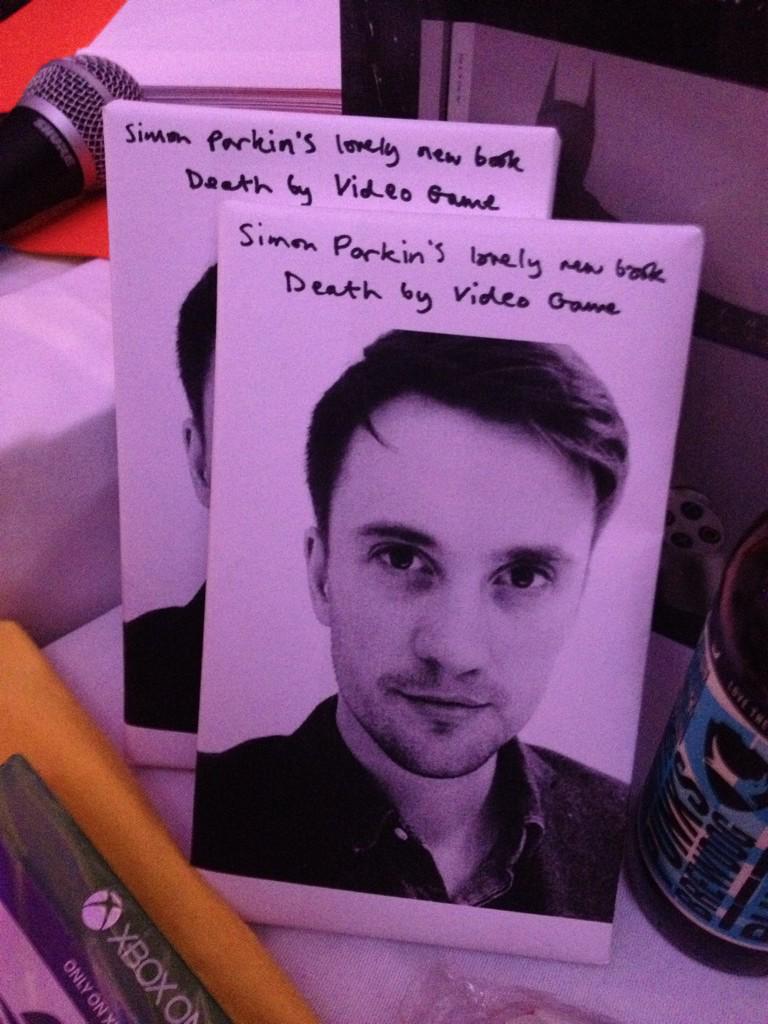 SHURE
Simon Parkin's lovely new book
Death by Video Game
Simon Parkin's lovely new book
Death by Video Game
LOVE THE
BREWDOG
XBOX ON
ONLY ON X